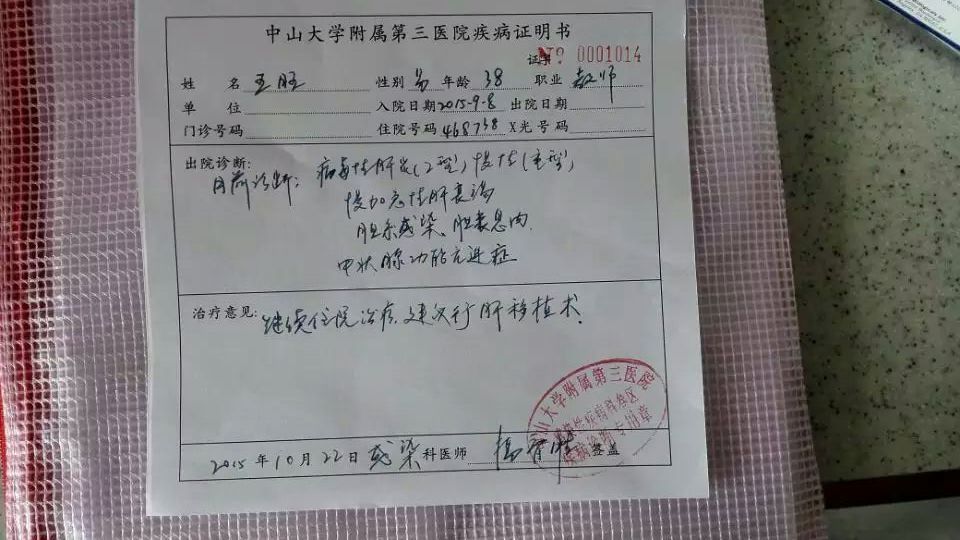 中山大学附属第三医院疾病证明书
证 № 0001014
姓 名 王旺 性别 男 年龄 38 职业 教师
单 位 入院日期 2015-9-8 出院日期
门诊号码 住院号码 468738 X光号码
出院诊断:
目前诊断: 病毒性肝炎(乙型)慢性(重型)
慢加急性肝衰竭
胆系感染、胆囊息肉
甲状腺功能亢进症
治疗意见: 继续住院治疗,建议行肝移植术.
山大学附属第三医院
专用章
2015 年 10 月 22 日 感染 科医师 签盖